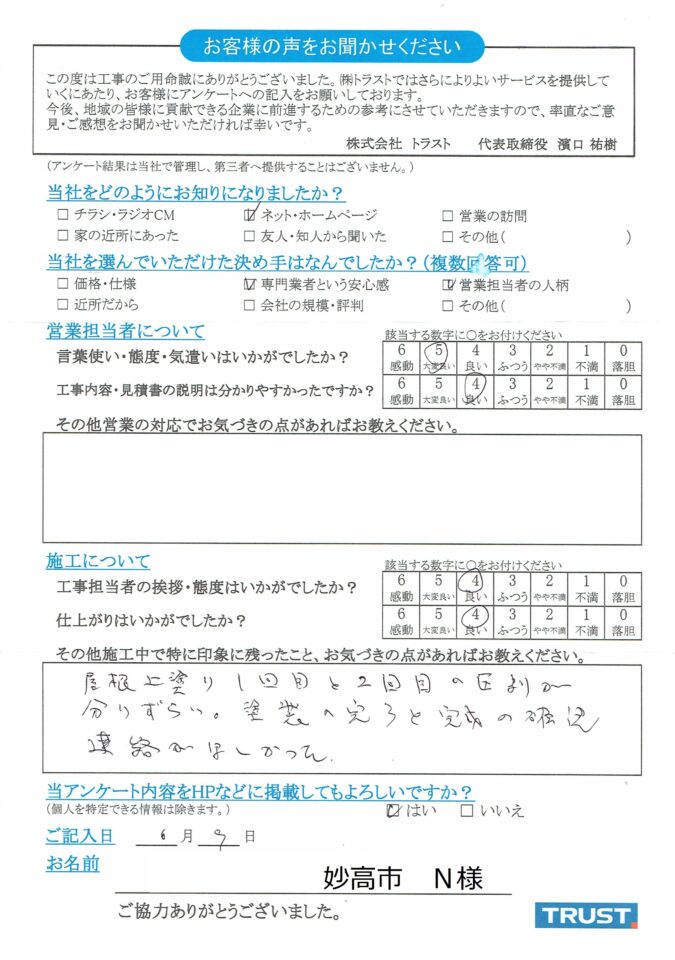 お客様の声をお聞かせください
この度は工事のご用命誠にありがとうございました。㈱トラストではさらによりよいサービスを提供して
いくにあたり、お客様にアンケートへの記入をお願いしております。
今後、地域の皆様に貢献できる企業に前進するための参考にさせていただきますので、率直なご意
見・ご感想をお聞かせいただければ幸いです。
株式会社 トラスト 代表取締役 濱口 祐樹
(アンケート結果は当社で管理し、第三者へ提供することはございません。)
当社をどのようにお知りになりましたか？
□ チラシ・ラジオCM ☑ ネット・ホームページ □ 営業の訪問
□ 家の近所にあった □ 友人・知人から聞いた □ その他( )
当社を選んでいただけた決め手はなんでしたか？(複数回答可)
□ 価格・仕様 ☑ 専門業者という安心感 ☑ 営業担当者の人柄
□ 近所だから □ 会社の規模・評判 □ その他( )
営業担当者について
該当する数字に○をお付けください
言葉使い・態度・気遣いはいかがでしたか？
6 5 4 3 2 1 0
感動 大変良い 良い ふつう やや不満 不満 落胆
工事内容・見積書の説明は分かりやすかったですか？
6 5 4 3 2 1 0
感動 大変良い 良い ふつう やや不満 不満 落胆
その他営業の対応でお気づきの点があればお教えください。
施工について
該当する数字に○をお付けください
工事担当者の挨拶・態度はいかがでしたか？
6 5 4 3 2 1 0
感動 大変良い 良い ふつう やや不満 不満 落胆
仕上がりはいかがでしたか？
6 5 4 3 2 1 0
感動 大変良い 良い ふつう やや不満 不満 落胆
その他施工中で特に印象に残ったこと、お気づきの点があればお教えください。
屋根上塗り1回目と2回目の区別が
分りずらい。塗装の完了と完成の確認
連絡がほしかった。
当アンケート内容をHPなどに掲載してもよろしいですか？
(個人を特定できる情報は除きます。)
☑ はい □ いいえ
ご記入日 6月9日
お名前
妙高市 N様
ご協力ありがとうございました。
TRUST.